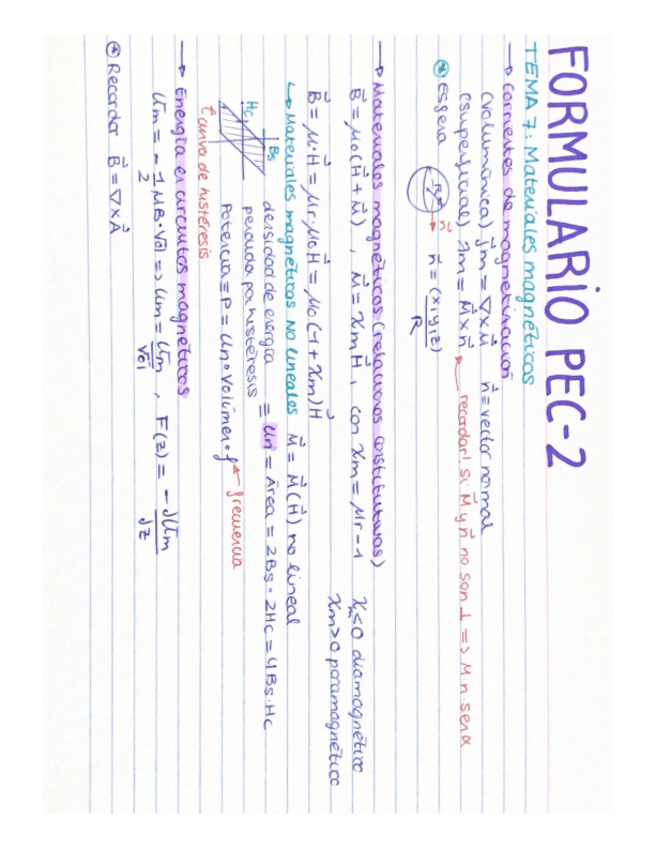 FORMULARIO PEC-2
TEMA 7: Materiales magnéticos
→ Corrientes de magnetización
(volumínica) J⃗m = ∇ × M⃗   n⃗ = vector normal
(superficial) Jm = M⃗ × n⃗   recordar! si M⃗ y n⃗ no son ⊥ => M·n·senα
* Esfera   R   n⃗   n⃗ = (x,y,z)/R
→ Materiales magnéticos (relaciones constitutivas)
B⃗ = μ₀(H⃗ + M⃗), M⃗ = χm H⃗, con χm = μr - 1   χm<0 diamagnético
B⃗ = μ·H⃗ = μr·μ₀H⃗ = μ₀(1 + χm)H⃗   χm>0 paramagnético
↳ Materiales magnéticos No lineales M⃗ = M⃗(H⃗) no lineal
Hc   Bs   densidad de energía
perdida por histéresis ≡ Un = Área = 2Bs · 2Hc = 4Bs·Hc
Potencia = P = Un · Volúmen · f   frecuencia
curva de histéresis
→ Energía en circuitos magnéticos
Um = -1/2 MB·Vol => um = Um/Vol, F(z) = -∂Um/∂z
* Recordar B⃗ = ∇ × A⃗